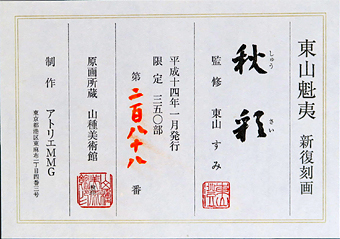 東山魁夷 新復刻画
秋彩
しゅう さい
監修 東山 すみ
平成十四年一月発行
限定 三五〇部
第 二百八十八 番
原画所蔵 山種美術館
制作 アトリエMMG
東京都港区東麻布二丁目四番三号